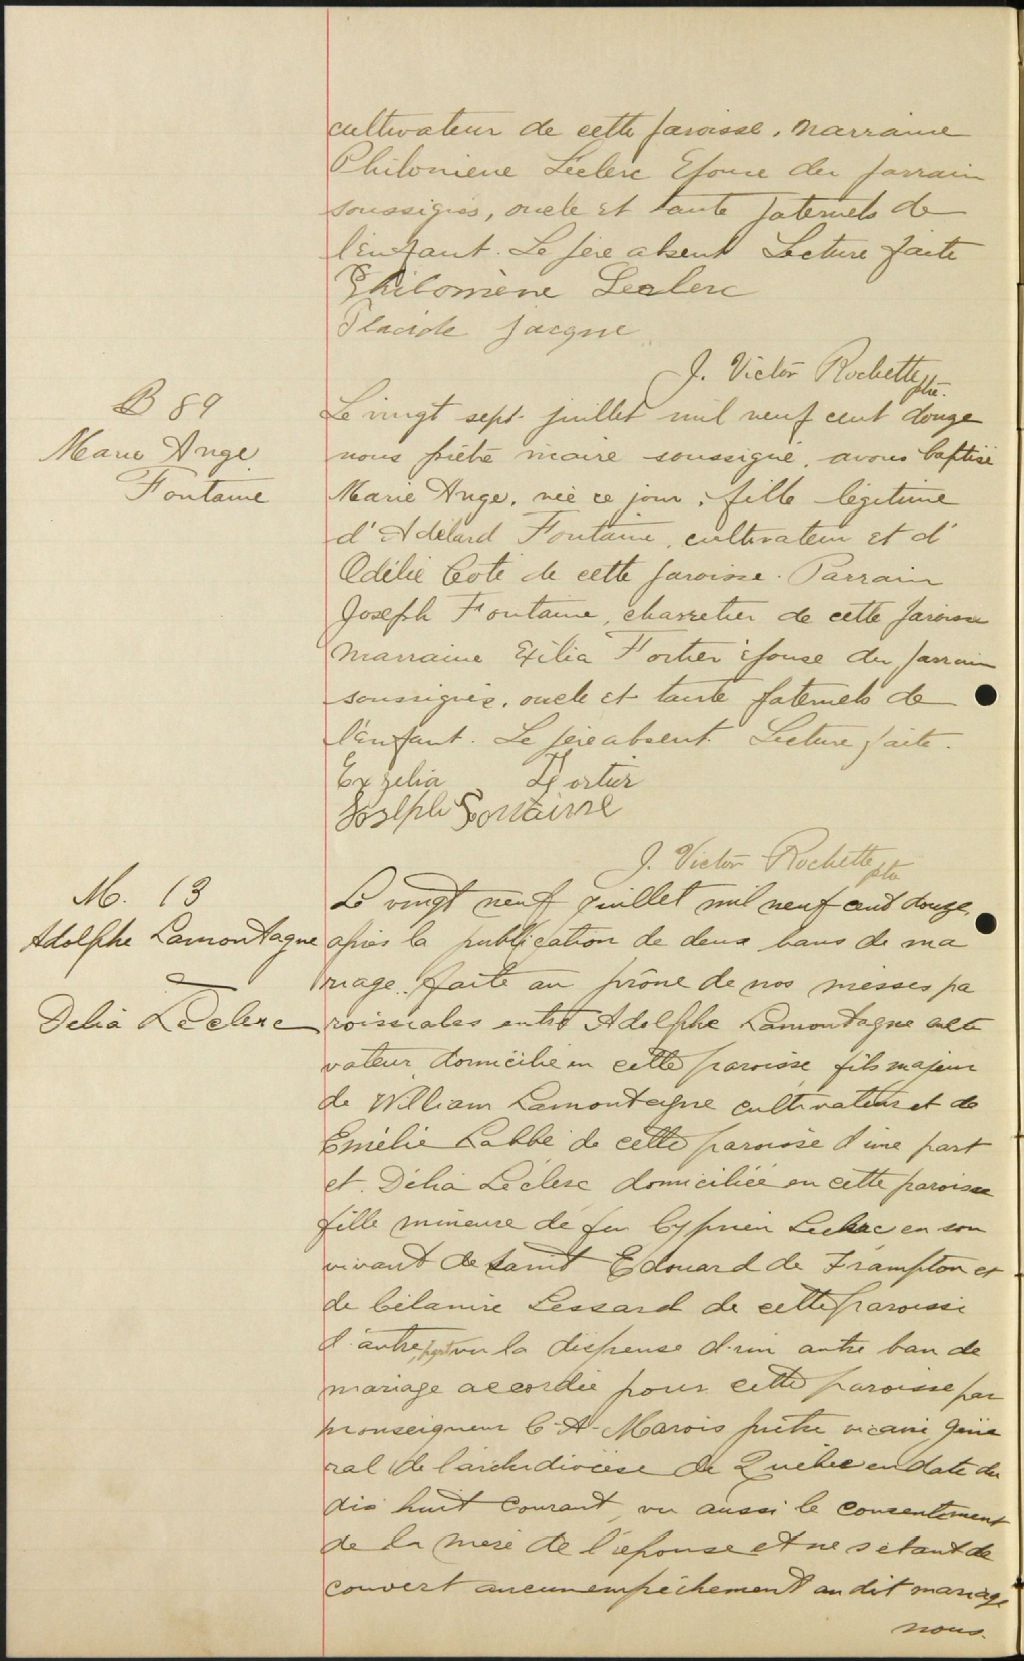 cultivateur de cette paroisse. Marraine
Philomène Leclerc Epouse du parrain
soussignés, oncle et tante paternels de
l'enfant. Le père absent Lecture faite
Philomène Leclerc
Placide Jacque
J. Victor Rochette ptre.
B 89
Marie Ange
Fontaine
Le vingt sept juillet mil neuf cent douze
nous prêtre vicaire soussigné, avons baptisé
Marie Ange, née ce jour, fille légitime
d'Adélard Fontaine, cultivateur et d'
Odélie Coté de cette paroisse. Parrain
Joseph Fontaine, charretier de cette paroisse
Marraine Exilia Fortier épouse du parrain
soussignés, oncle et tante paternels de
l'enfant. Le père absent. Lecture faite.
Exzelia Fortier
Joseph Fontainne
J. Victor Rochette ptre
M. 13
Adolphe Lamontagne
&
Delia Leclerc
Le vingt neuf juillet mil neuf cent douze,
après la publication de deux bans de ma
riage faite au prône de nos messes pa
roissiales entre Adolphe Lamontagne culti
vateur, domicilié en cette paroisse, fils majeur
de William Lamontagne cultivateur et de
Emélie Labbé de cette paroisse d'une part
et Délia Leclerc domiciliée en cette paroisse
fille mineure de feu Cyprien Leclerc en son
vivant de Saint Edouard de Frampton et
de Célanire Lessard de cette paroisse
d'autre part, vu la dispense d'un autre ban de
mariage accordée pour cette paroisse par
monseigneur C A Marois prêtre vicaire géné
ral de l'archidiocèse de Québec en date du
dix huit courant, vu aussi le consentement
de la mère de l'épouse et ne s'étant dé
couvert aucun empêchement au dit mariage
nous